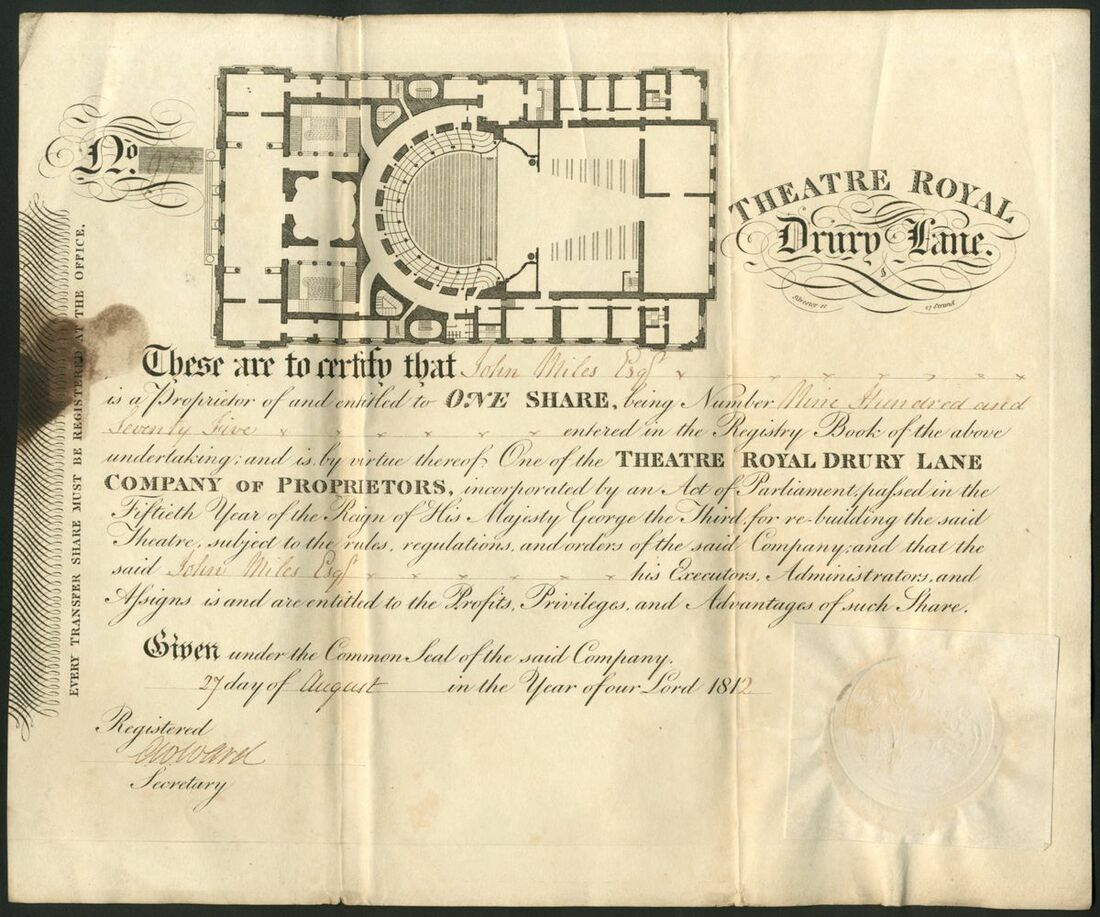 No. 975
THEATRE ROYAL
Drury Lane.
Silvester sc 27 Strand
EVERY TRANSFER SHARE MUST BE REGISTERED AT THE OFFICE.
These are to certify that John Miles Esqr
is a Proprietor of and entitled to ONE SHARE, being Number Nine Hundred and
Seventy Five entered in the Registry Book of the above
undertaking; and is, by virtue thereof, One of the THEATRE ROYAL DRURY LANE
COMPANY OF PROPRIETORS, incorporated by an Act of Parliament, passed in the
Fiftieth Year of the Reign of His Majesty George the Third, for re-building the said
Theatre, subject to the rules, regulations, and orders of the said Company; and that the
said John Miles Esqr his Executors, Administrators, and
Assigns is and are entitled to the Profits, Privileges, and Advantages of such Share.
Given under the Common Seal of the said Company.
27 day of August in the Year of our Lord 1812
Registered
Ward
Secretary